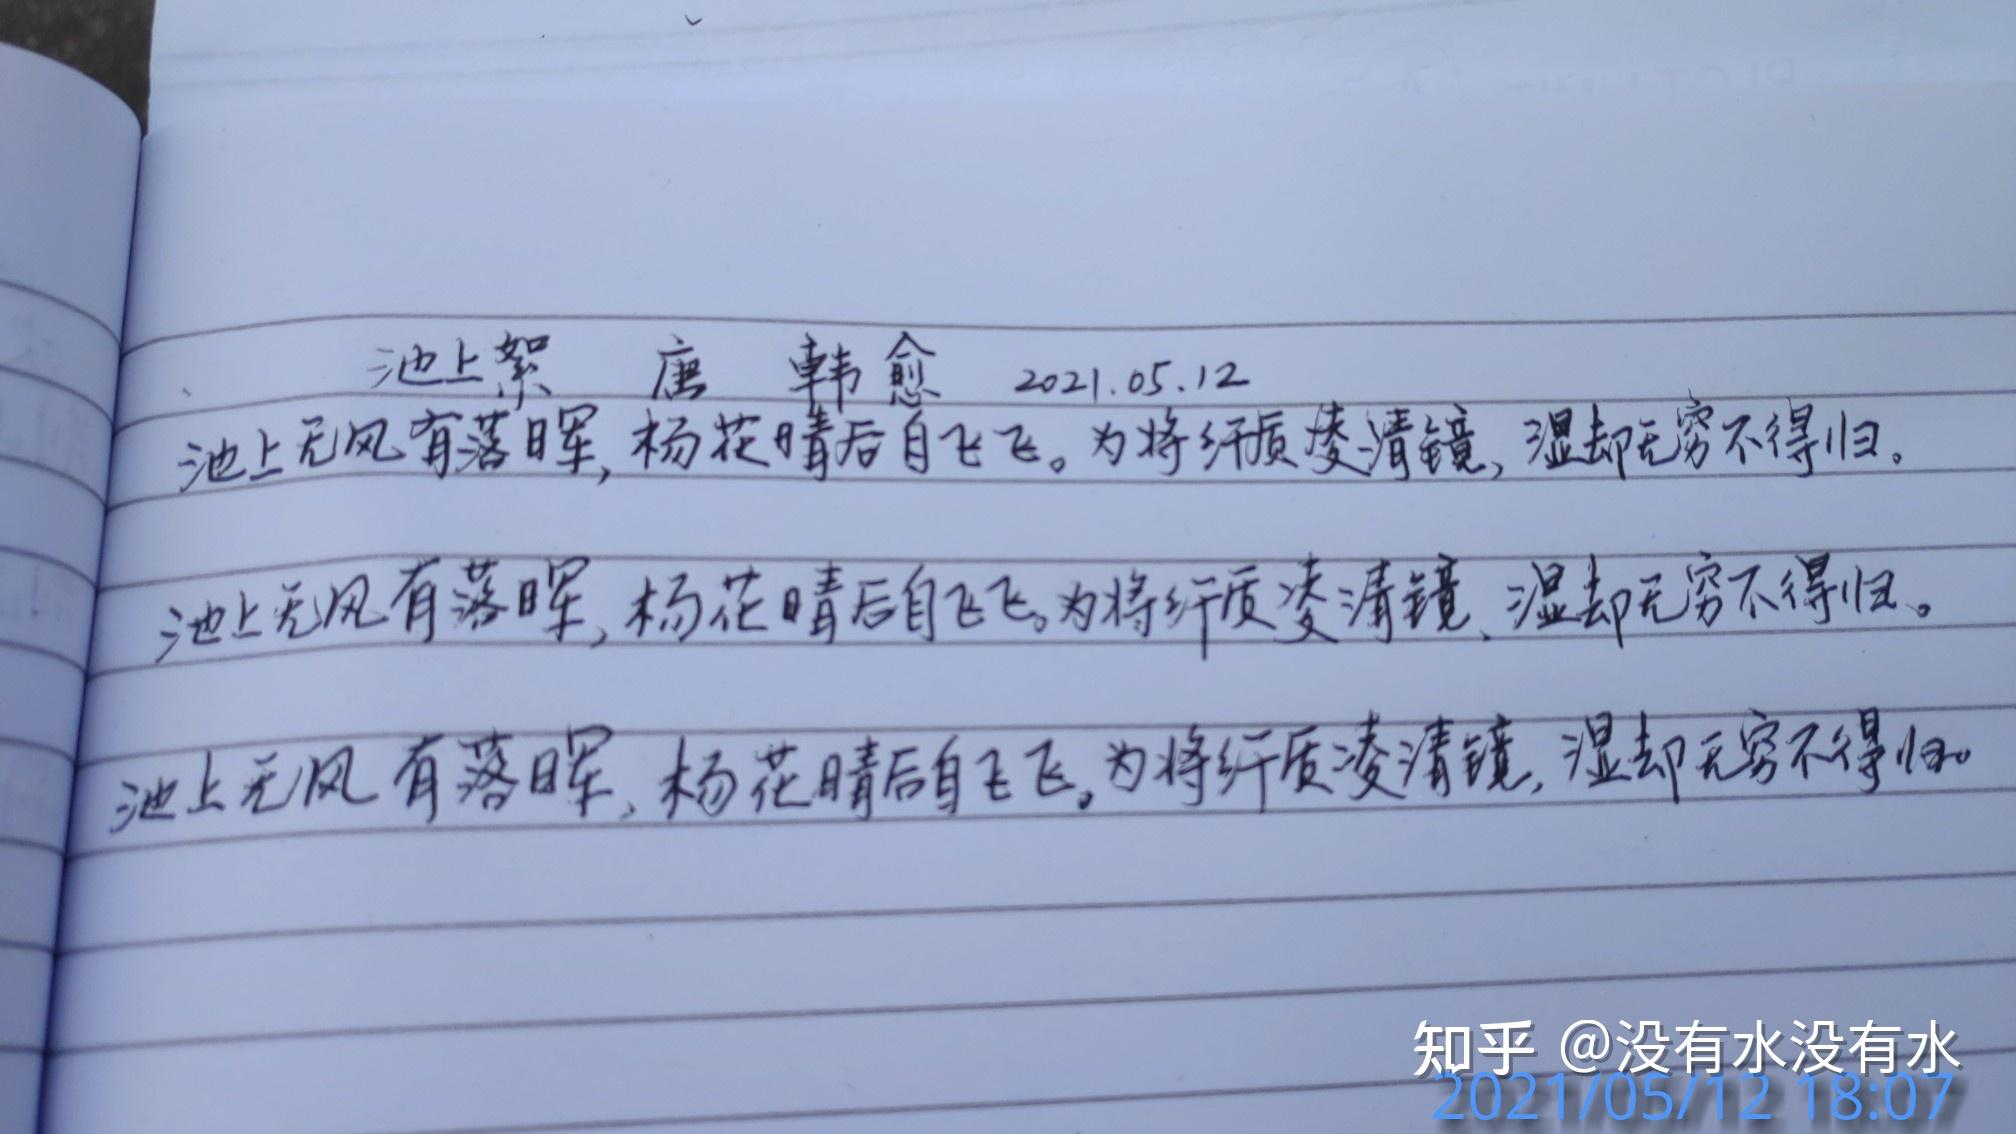 池上絮 唐 韩愈 2021.05.12
池上无风有落晖,杨花晴后自飞飞。为将纤质凌清镜,湿却无穷不得归。
池上无风有落晖,杨花晴后自飞飞。为将纤质凌清镜、湿却无穷不得归。
池上无风有落晖、杨花晴后自飞飞。为将纤质凌清镜,湿却无穷不得归。
知乎 @没有水没有水
2021/05/12 18:07